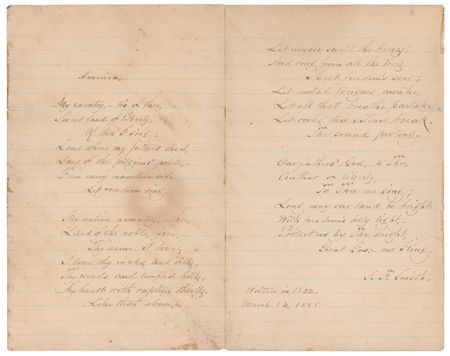 America.
My country, – 'tis of thee,
Sweet land of liberty,
Of thee I sing;
Land where my fathers died,
Land of the pilgrims' pride,–
From every mountain side
Let freedom ring.
My native country, – thee,
Land of the noble, free,–
Thy name I love;
I love thy rocks and rills,
Thy woods and templed hills,
My heart with rapture thrills
Like that above.
Let music swell the breeze,
And ring from all the trees
Sweet freedom's song;
Let mortal tongues awake,
Let all that breathe partake,
Let rocks their silence break,
The sound prolong.
Our fathers' God, – to Thee,
Author of liberty,
To Thee we sing;
Long may our land be bright
With freedom's holy light,
Protect us by Thy might,
Great God, our King.
S. F. Smith.
Written in 1832.
March 13, 1885.